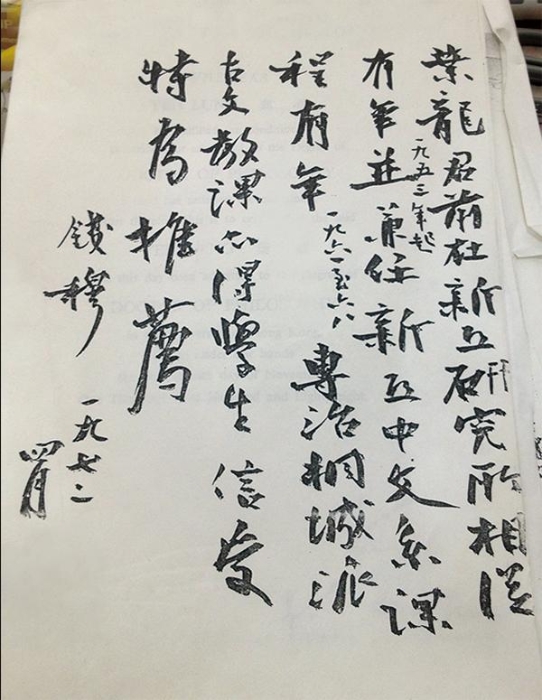 葉龍君前在新亞研究所相從
一九五三年起
有年並兼任新亞中文系課
程有年一九六一至六八專治桐城派
古文教課亦得學生信受
特為推薦
錢穆
一九七二
四月